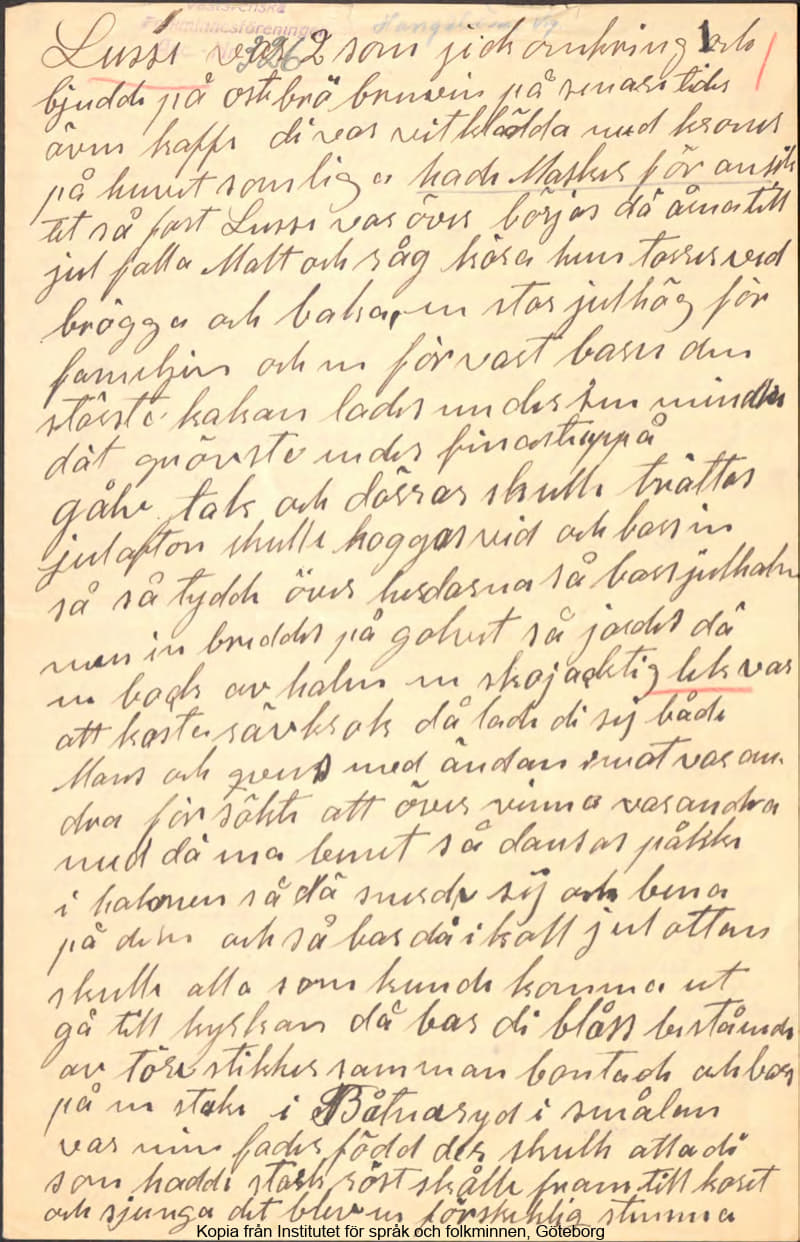 Västsvenska
Folkminnesföreningen
326
1
Lussi var 2 som jick omkring och
bjudde på ostebrö brenvin på senare tider
även kaffe di var vitklädda med kronor
på huvet somliga hade Masker för ansik
tet så fort Lussi var över börjas då åma till
jul falla Malt och råg köra hem torr ved
brögga och baka, en stor julhög för
familjen och en för vart barn den
största kakan lades underst en mindre
dät grövste under finast uppå
gålv tak och dörrar skulle tvättas
julafton skulle hoggas ved och bars in
så så tydde över husdarna så bars julhalm
men in breddes på golvet så jordes då
en bock av halm en skojacktig lek var
att kasta rävkrok då lade di sej både
Mans och qvens med ändan imot varan
dra försökte att över vinna varandra
med dä ina benet så dansas
i halmen så dä snerde sej och bena
på dem och så bar dä i koll jul ottan
skulle alla som kunde komma ut
gå till kyrkan då bar di blåss bestående
av törestikker samman bontade och bars
på en stake i Båtnaryd i smålan
var min fader född der skulle alla di
som hadde stark röst ställe fram till koret
och sjunga det blev en förskreklig stemma
Kopia från Institutet för språk och folkminnen, Göteborg